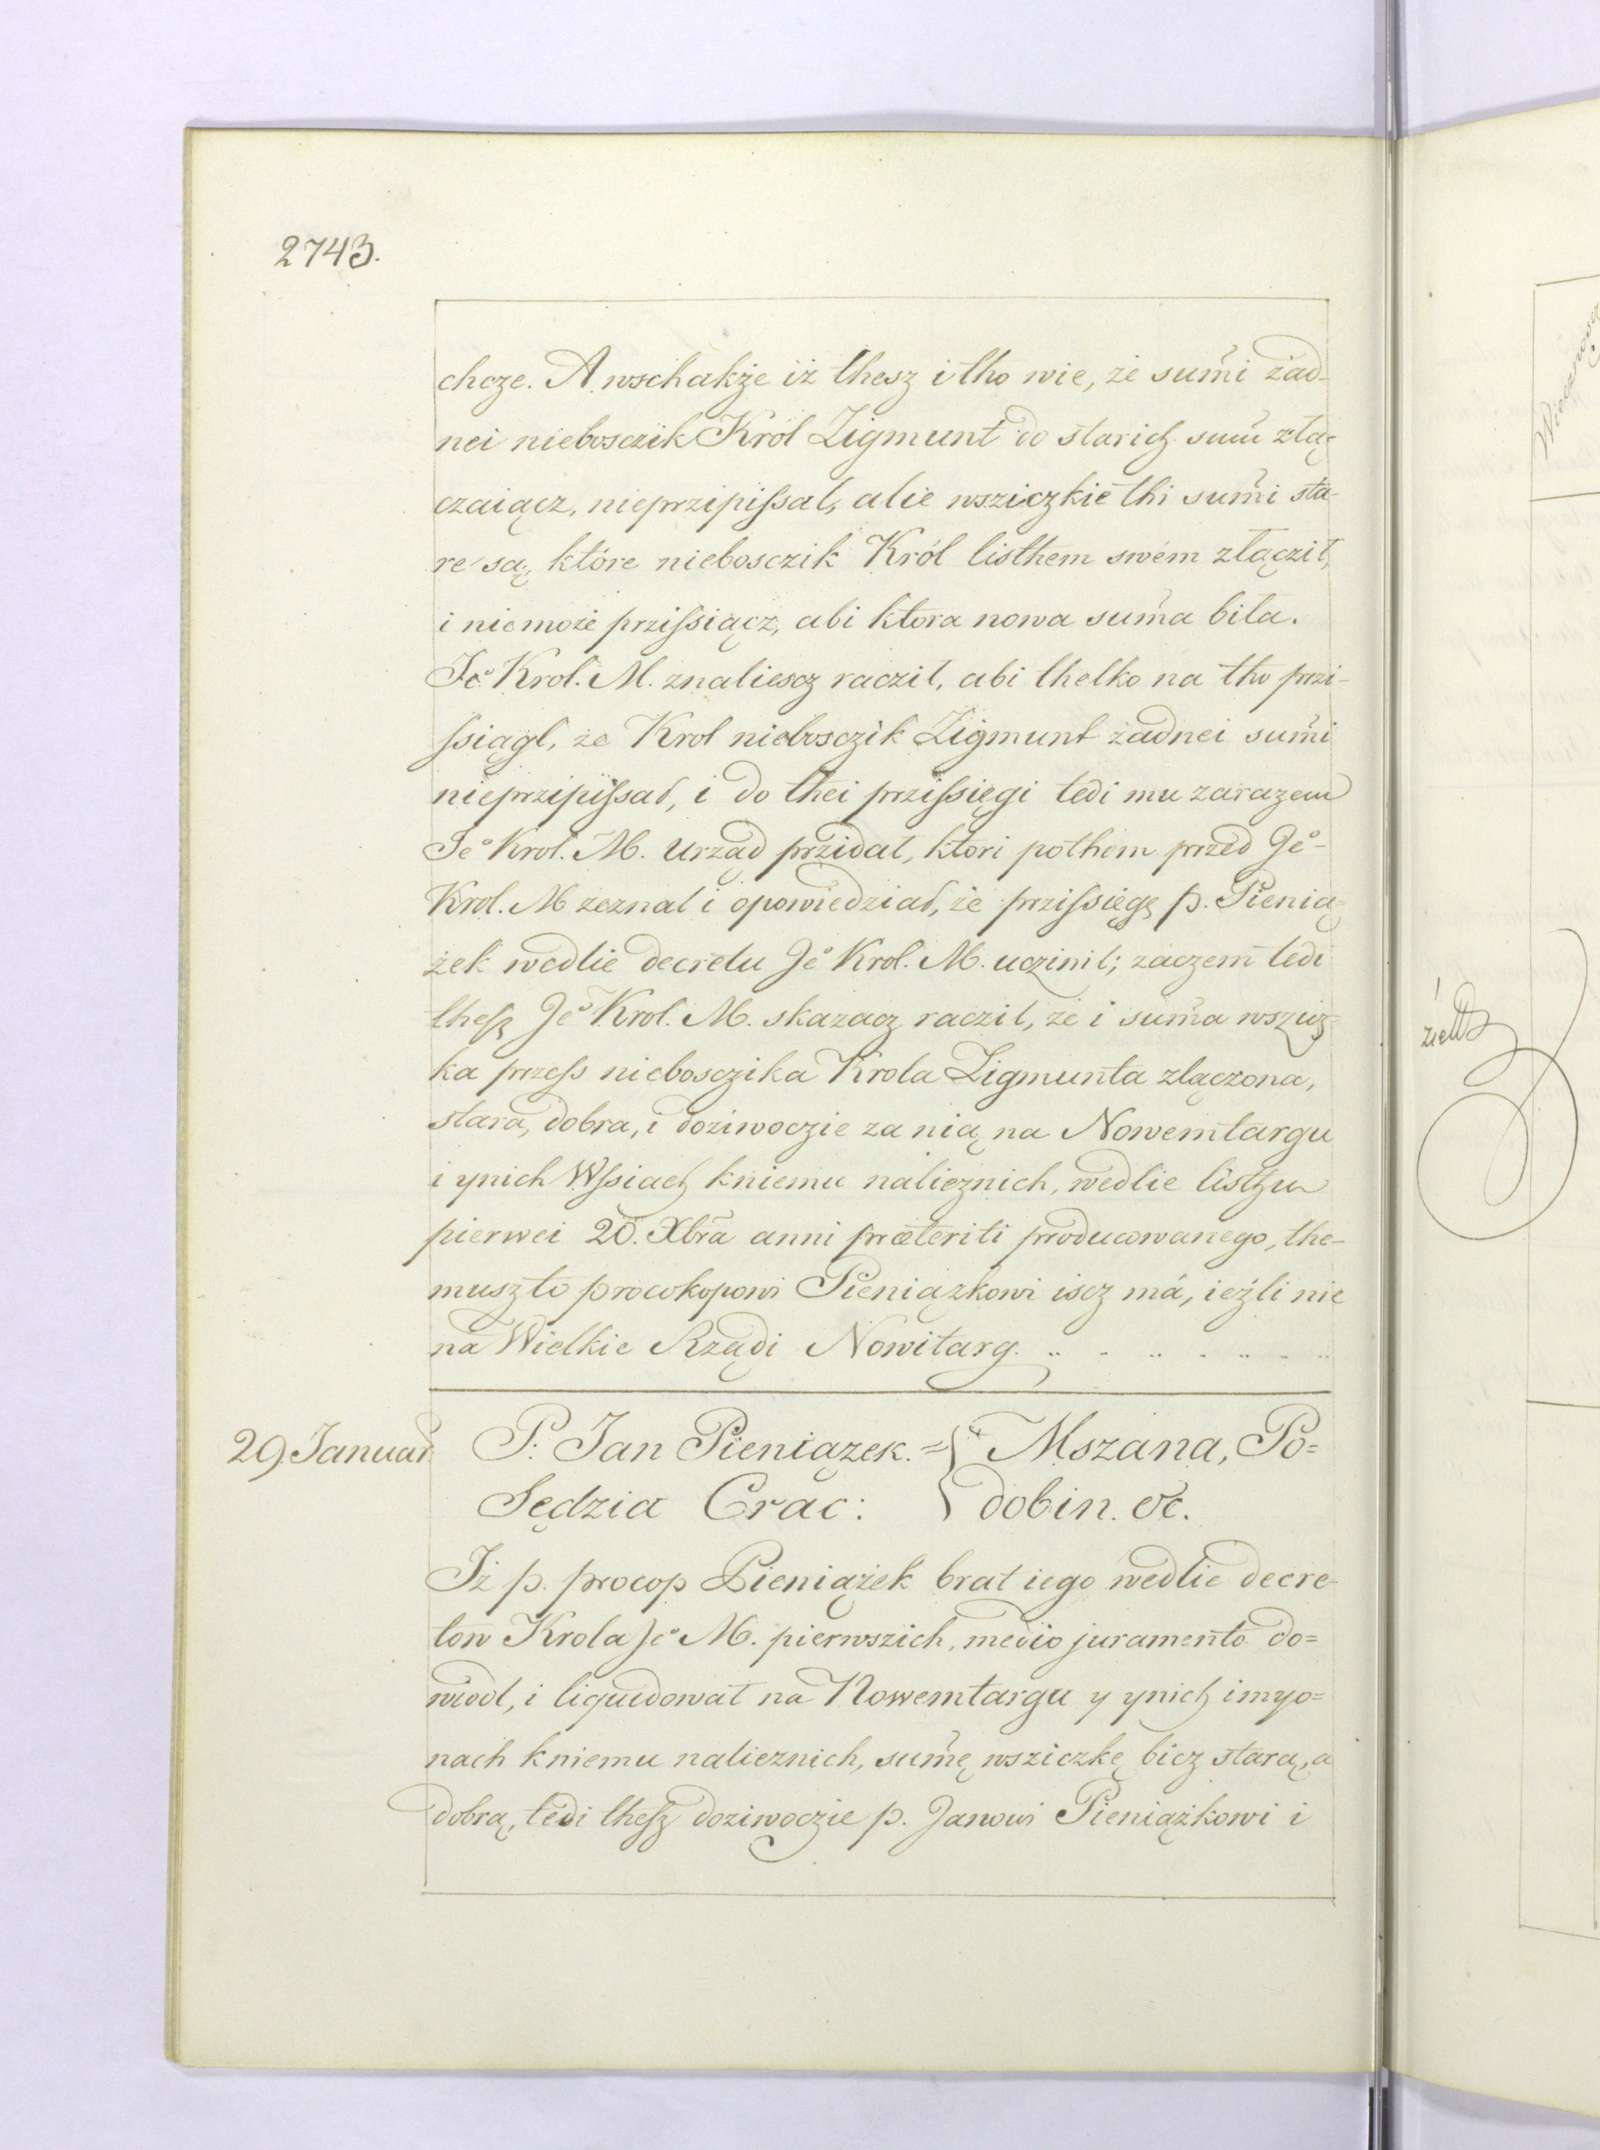 2743.
chcze. A wschakże iż thesz i tho wie, że sum̃i żad-
nei niebosczik Król Zigmunt do starich sum̃ złą-
czaiącz, nieprzipissał, alie wsziczkie thi sum̃i sta-
re są, które niebosczik Król listhem swém złącził,
i niemoże przissiącz, abi ktora nowa sum̃a biła.
Jeº Krol. M. znaliescz raczil, abi thelko na tho przi-
ssiągł, że Krol niebosczik Zigmunt żadnei sum̃i
nieprzipissał, i do thei przissięgi tedi mu zarazem
Jeº Krol. M. Urząd przidał, ktori pothem przed Jeº
Krol. M zeznał i opowiedział, że przissięgę p. Pienią-
żek wedlie decretu Jeº Krol. M. uczinił; zaczem tedi
thesz Jeº Krol. M. skazacz raczil, że i sum̃a wszicz-
ka przess niebosczika Krola Zigmunta złączona,
stara, dobra, i doziwoczie za nią na Nowemtargu
i ynich Wssiach kniemu należnich, wedlie listhu
pierwei 20. Xbra anni præteriti producowanego, the-
muszto procokopowi Pieniązkowi iscz má, ieźli nie
na Wielkie Rządi Nowitarg.
29. Januar P. Jan Pieniązek. = { Mszana, Po=
Sędzia Crac: dobin. &c.
Iż p. procop Pieniążek brat iego wedlie decre-
tow Krola Jeº M. pierwszich, medio juramento do=
wiodł, i liquidował na Nowemtargu y ynich imyo=
nach kniemu nalieznich, sum̃ę wsziczkę bicz starą, a
dobrą, tedi thesz doziwoczie p. Janowi Pieniążkowi i